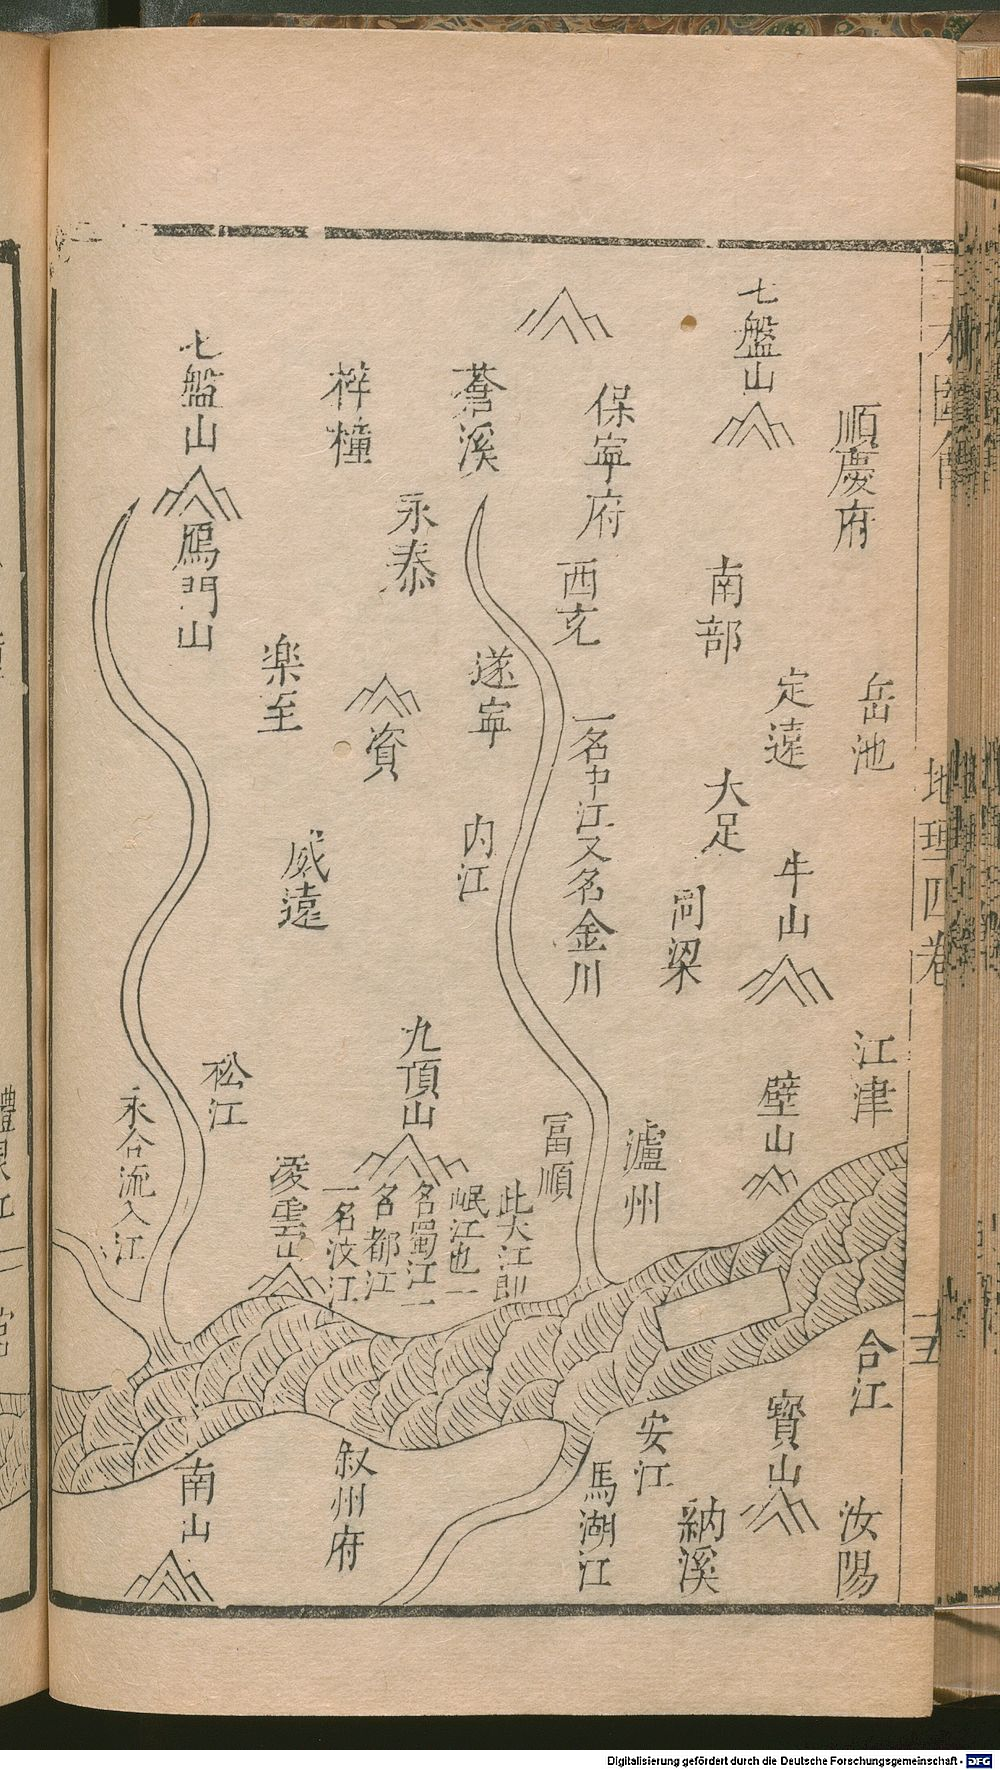 地理四卷
順慶府
岳池
江津
合江
汝陽
七盤山
定遠
牛山
壁山
寳山
南部
大足
同梁
瀘州
安江
納溪
保寧府
西充
一名中江又名金川
馬湖江
蒼溪
遂寧
内江
富順
此大江即
岷江也一
名蜀江一
名都江
一名汶江
永泰
九頂山
梓橦
資
叙州府
楽至
威遠
凌雲山
七盤山
鴈門山
松江
永合流入江
南山
Digitalisierung gefördert durch die Deutsche Forschungsgemeinschaft - DFG